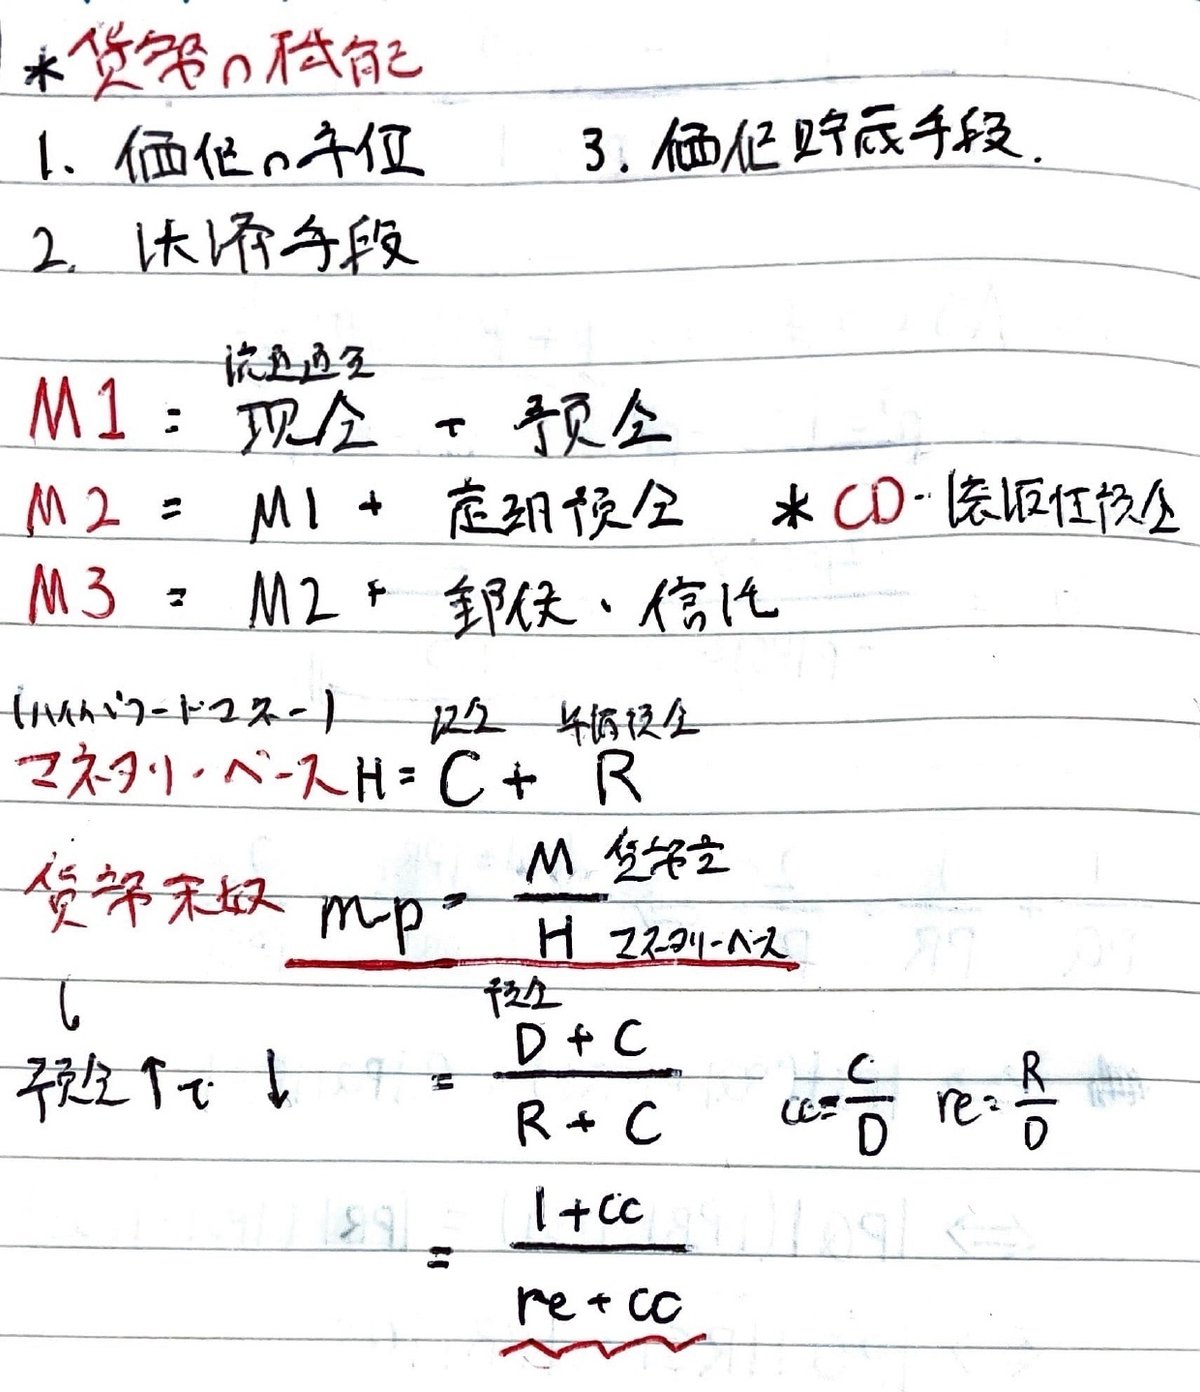 *貨幣の機能
1. 価値の単位 3. 価値貯蔵手段.
2. 決済手段
流通通貨
M1 = 現金 + 預金
M2 = M1 + 定期預金 * CD・譲渡性預金
M3 = M2 + 郵便・信托
(ハイパワードマネー) 現金 準備預金
マネタリ・ベース H = C + R
貨幣乗数 mp = M/H 貨幣量 マネタリーベース
預金
預金↑で ↓ = D + C / R + C cc = C/D re = R/D
= 1 + cc / re + cc